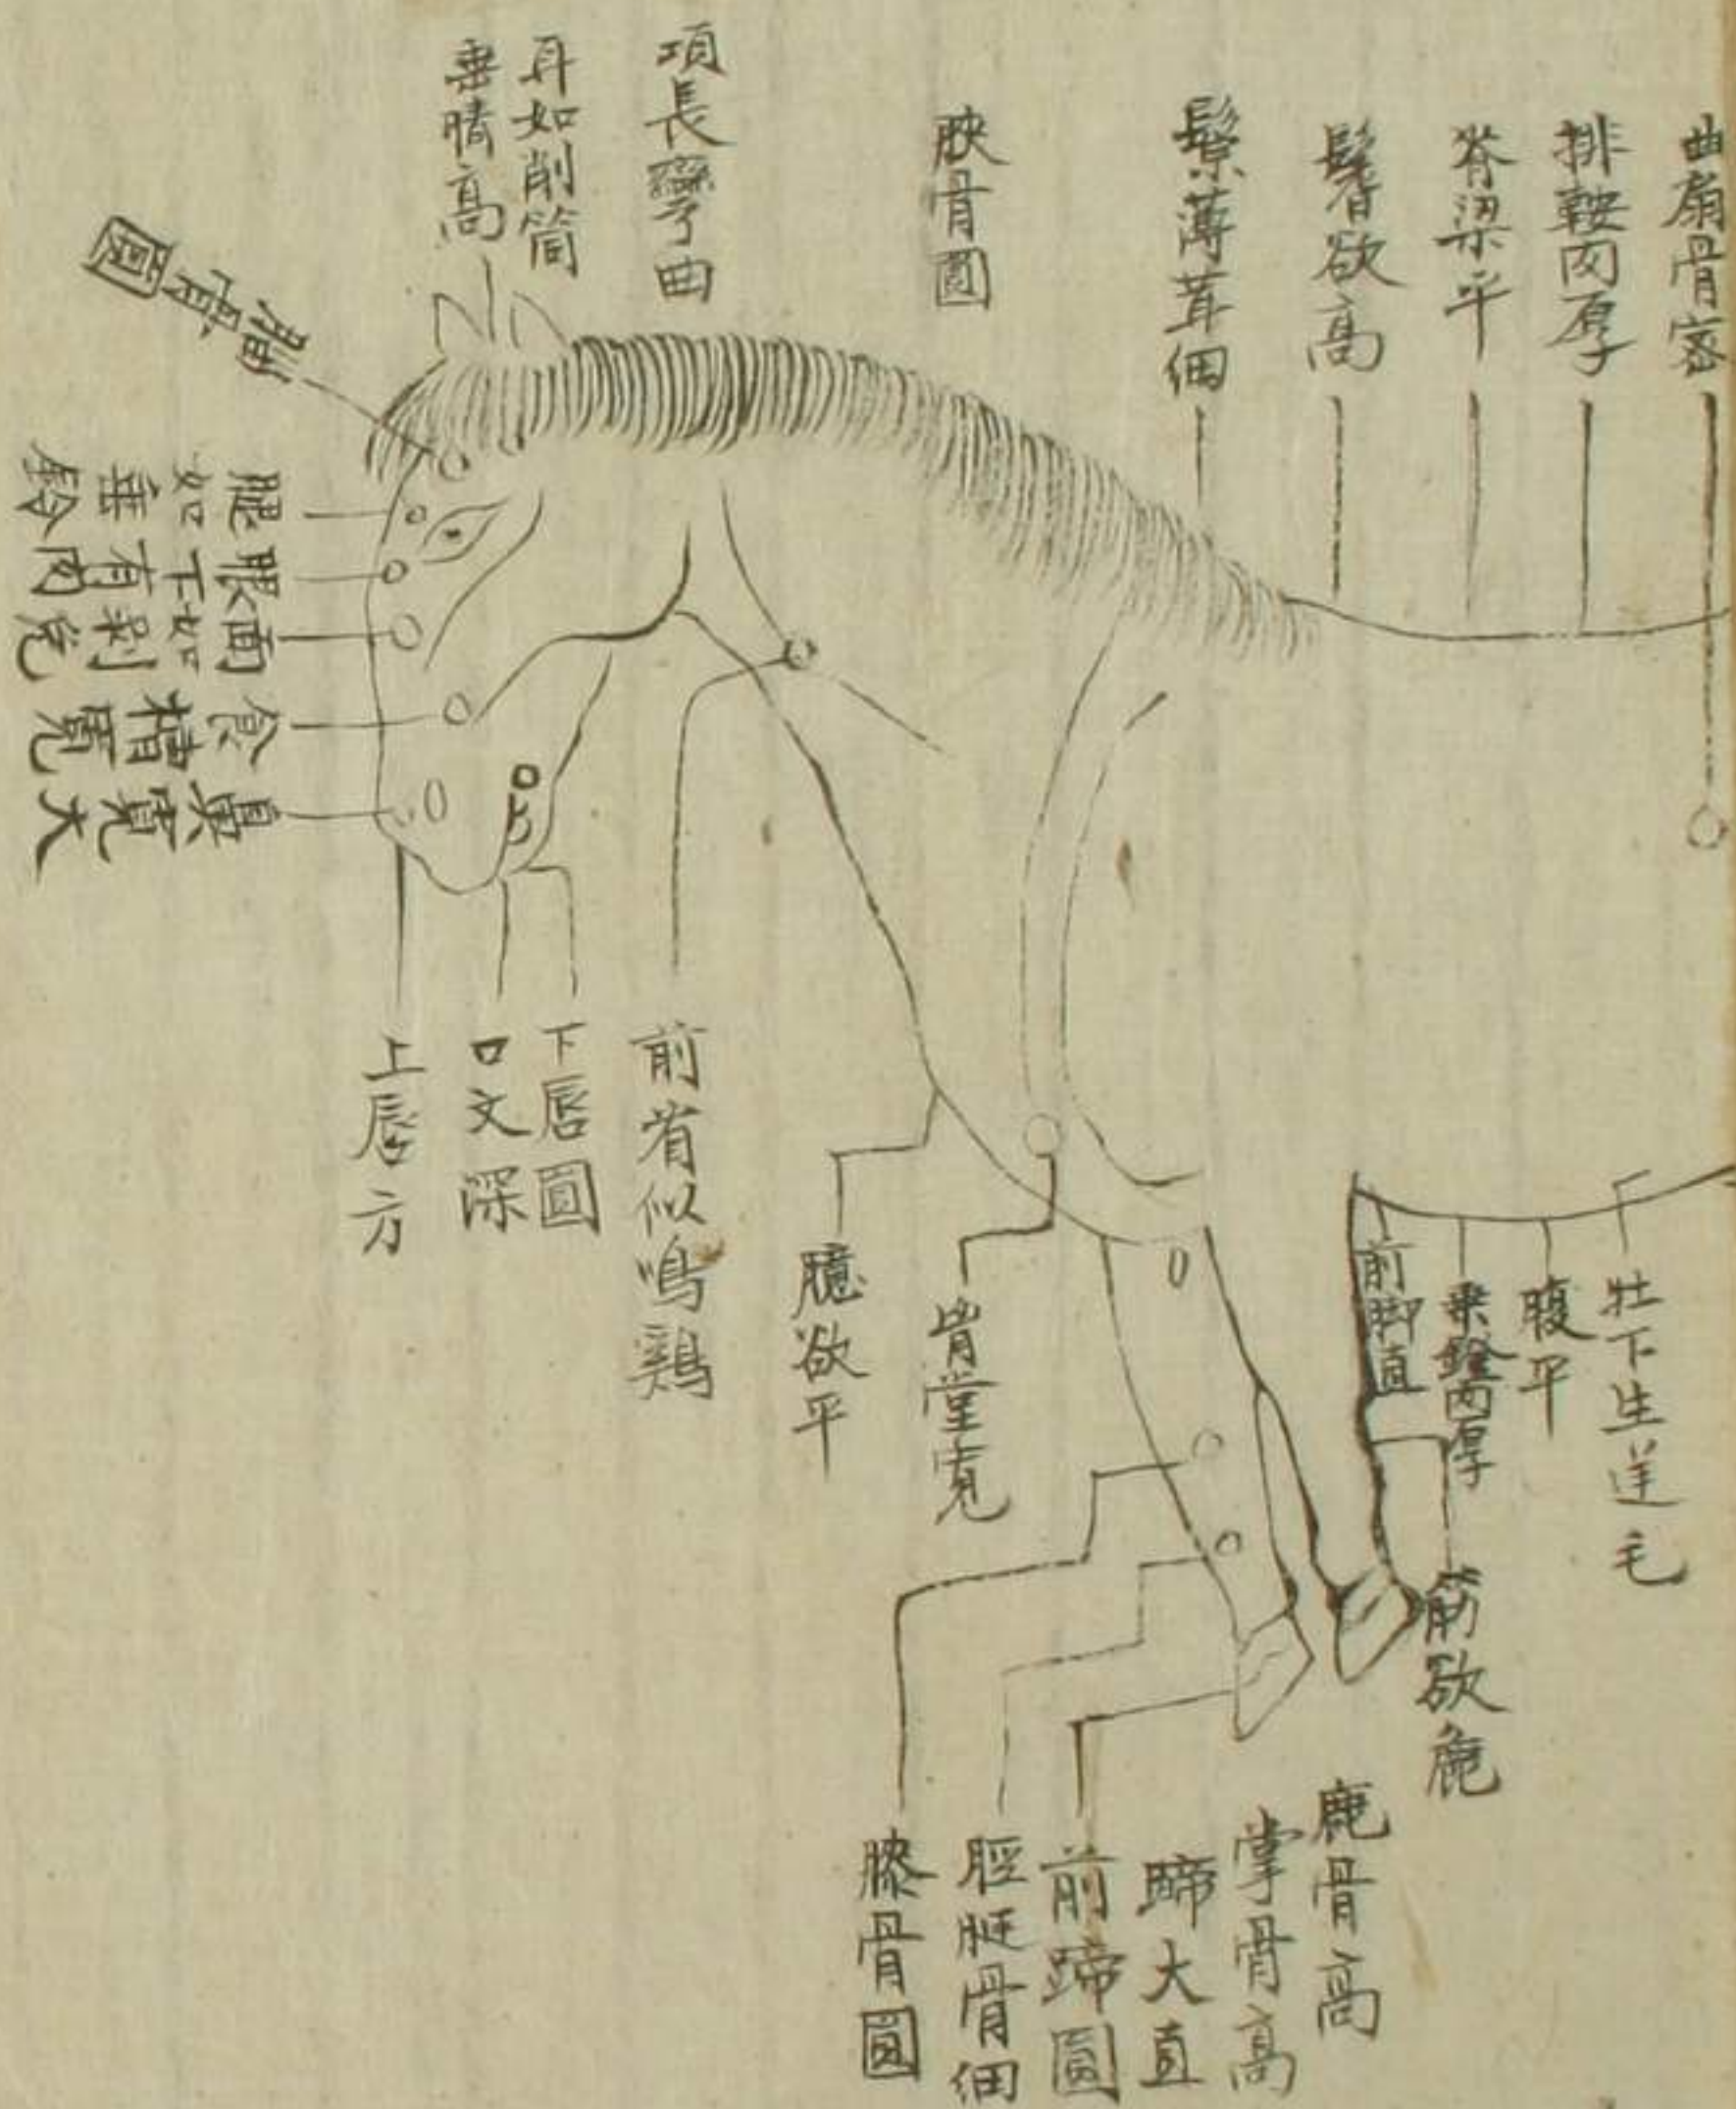 曲扇骨密
排鞍肉厚
脊梁平
鬐欲高
鬃薄茸細
脥骨圓
項長彎曲
耳如削筒
垂睛高
腦骨圓
腮如垂鈴
眼下有肉
面如剥兔
食槽寬
鼻寬大
上唇方
口文深
下唇圓
前看似鳴鷄
臆欲平
胷堂寬
前脚直
乗鐙肉厚
腹平
牡下生逆毛
筋欲麄
鹿骨高
掌骨高
蹄大直
前蹄圓
脛骨細
膝骨圓